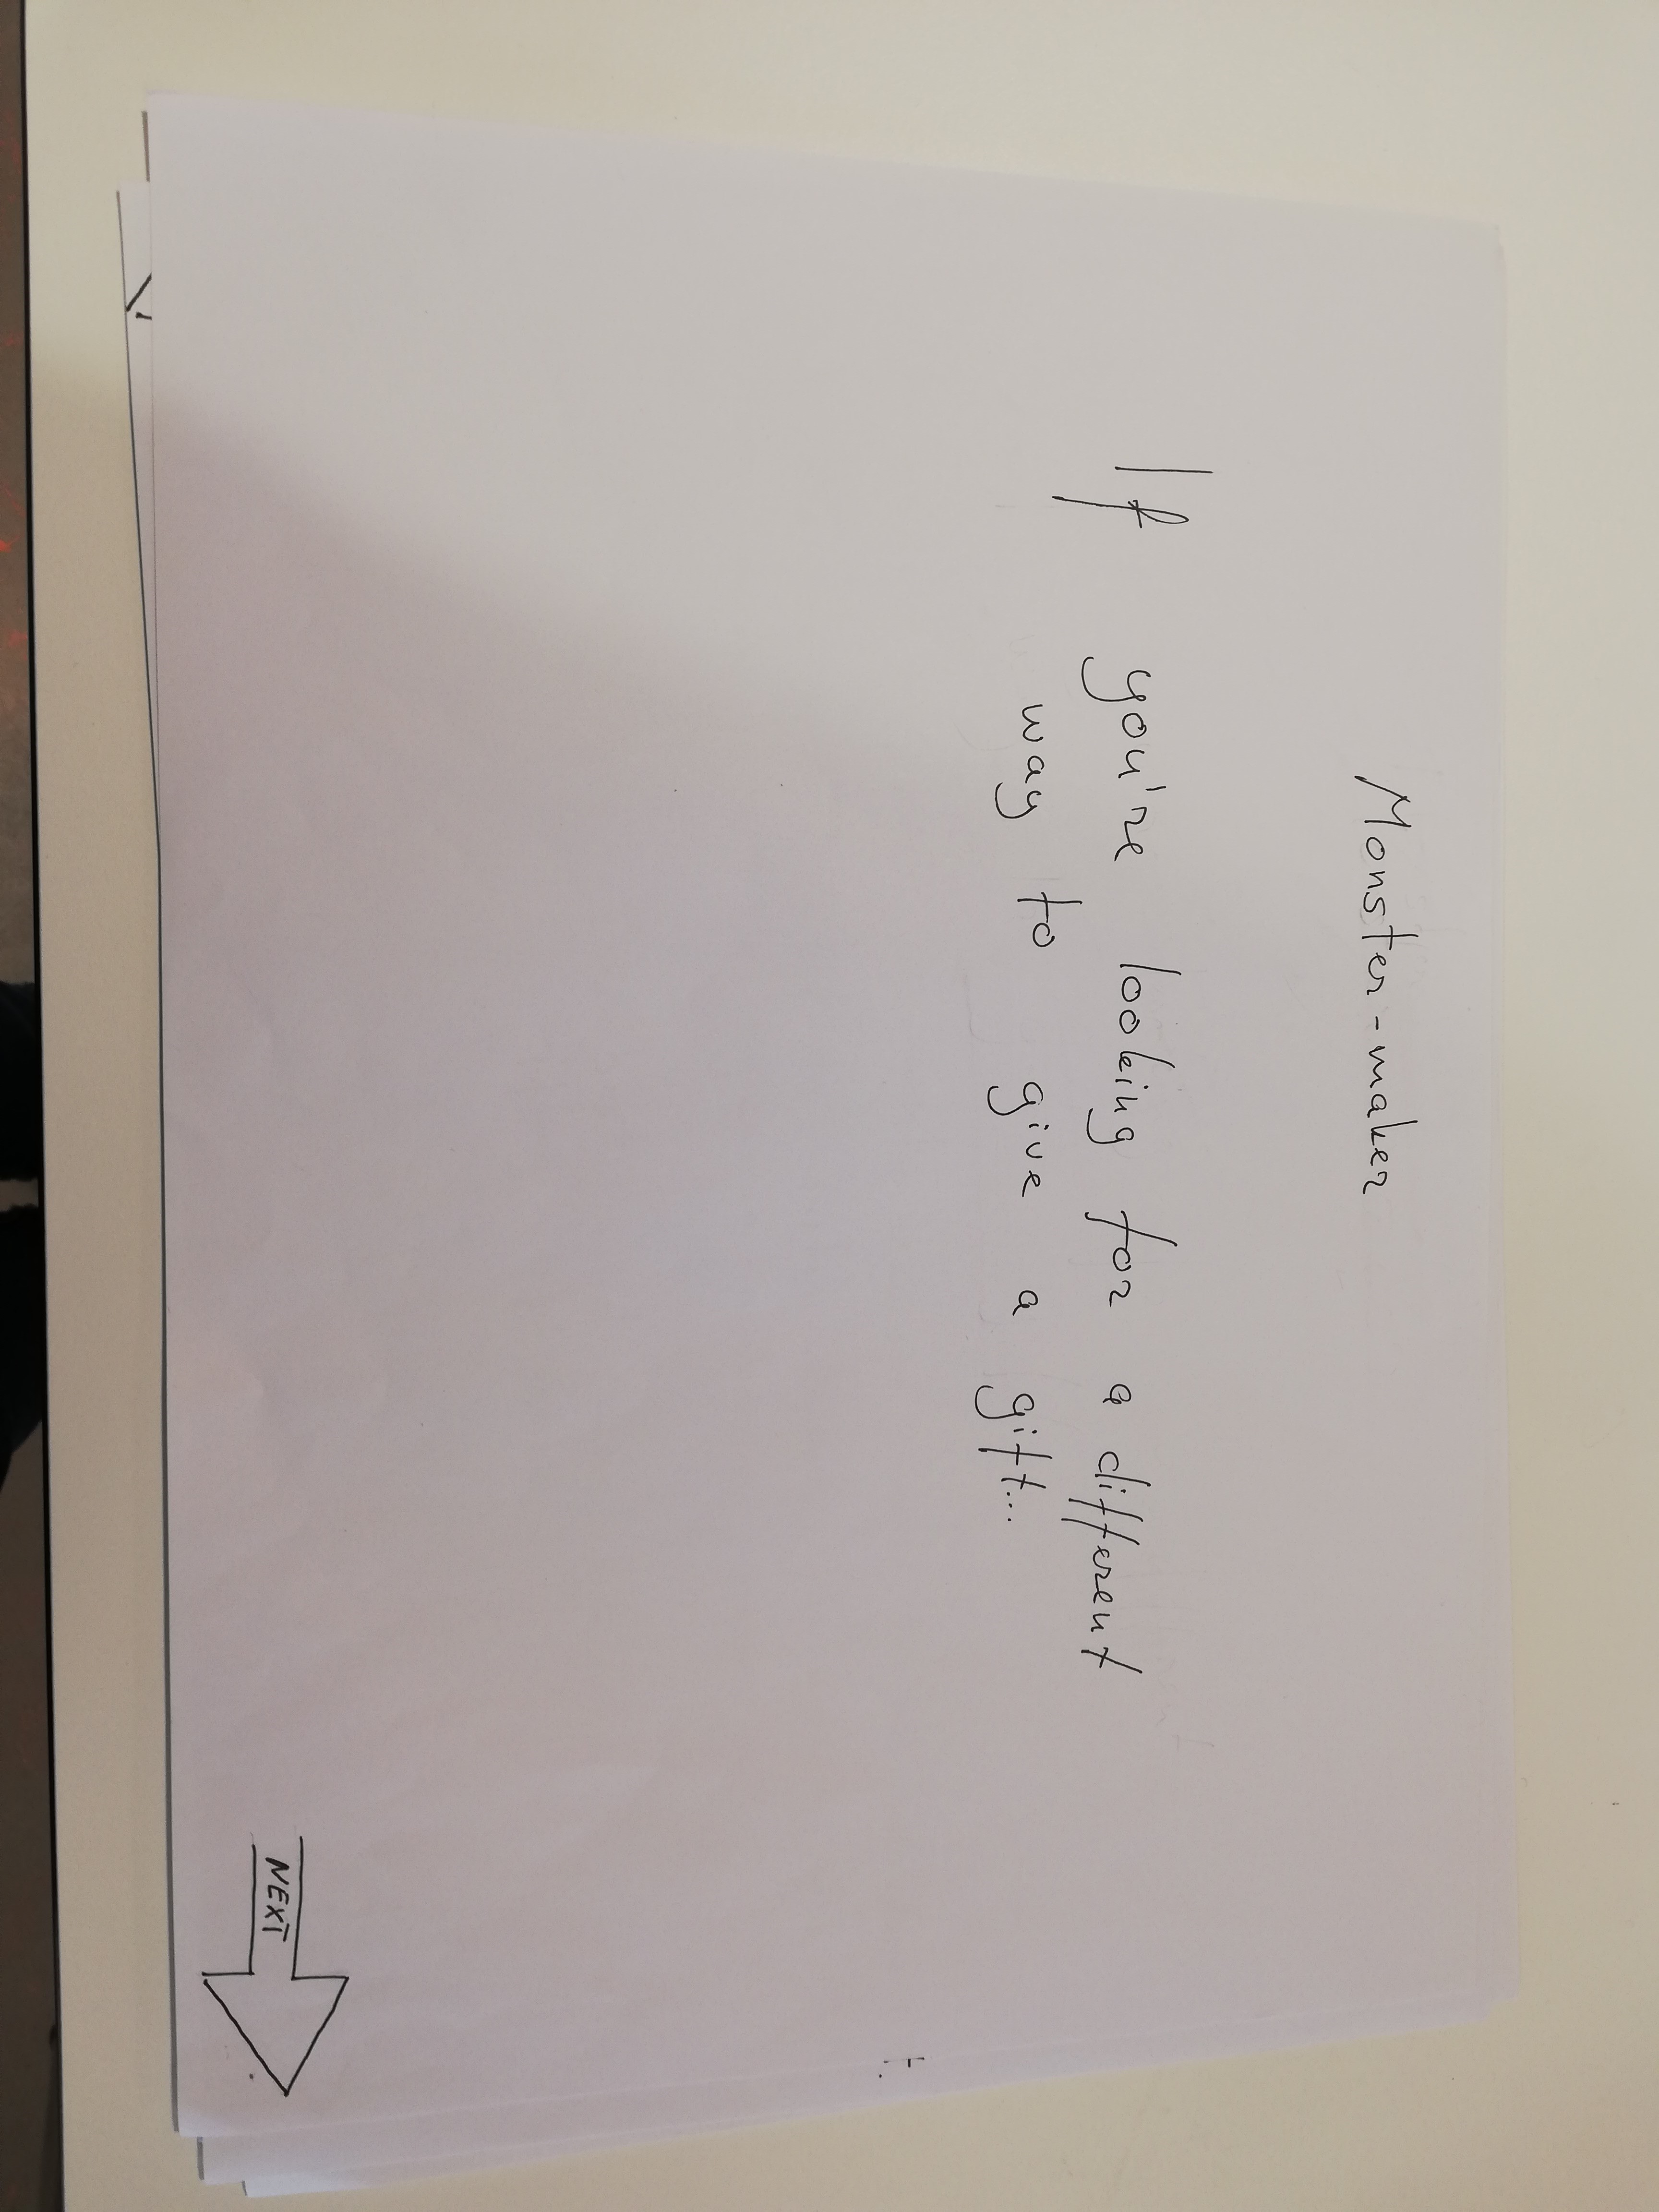 Monster-maker
If you're looking for a different
way to give a gift...
NEXT